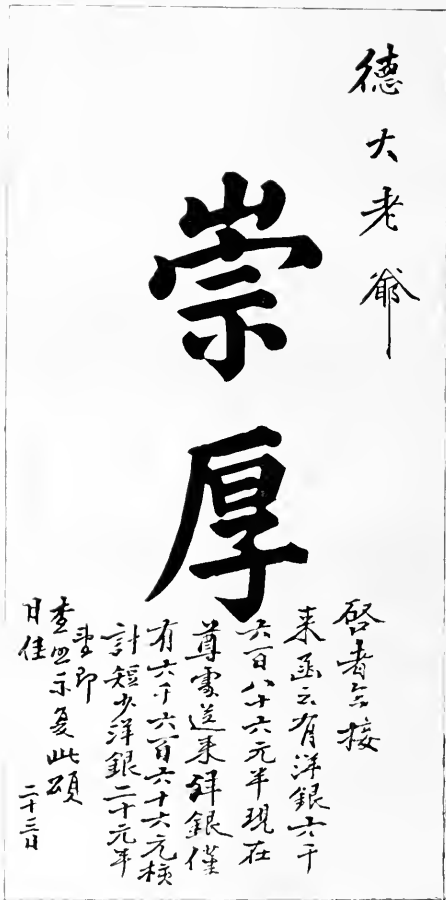 德大老爺
崇厚
啓者今接
來函云有洋銀六千
六百八十六元半現在
尊處送來洋銀僅
有六千六百六十六元核
計短少洋銀二十元半
望即
查照示复此頌
日佳
二十三日